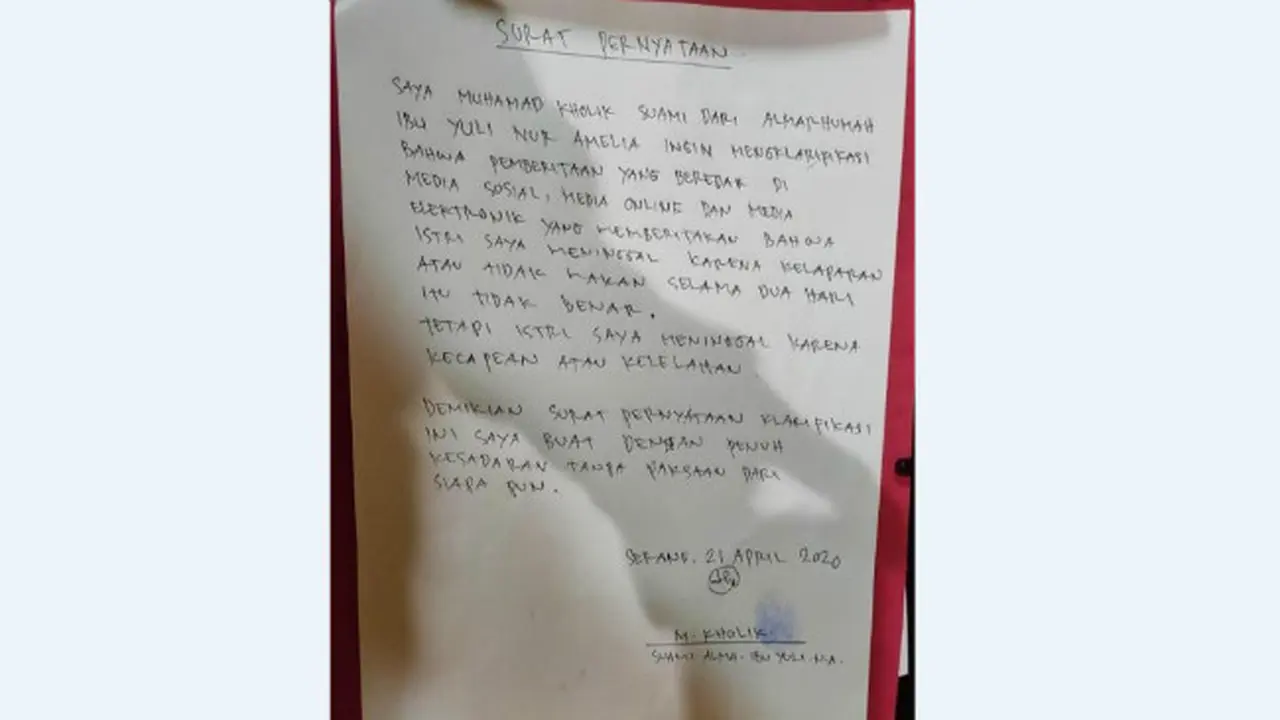 SURAT PERNYATAAN
SAYA MUHAMAD KHOLIK SUAMI DARI ALMARHUMAH
IBU YULI NUR AMELIA INGIN MENGKLARIFIKASI
BAHWA PEMBERITAAN YANG BEREDAR DI
MEDIA SOSIAL, MEDIA ONLINE DAN MEDIA
ELEKTRONIK YANG MEMBERITAKAN BAHWA
ISTRI SAYA MENINGGAL KARENA KELAPARAN
ATAU TIDAK MAKAN SELAMA DUA HARI
ITU TIDAK BENAR.
TETAPI ISTRI SAYA MENINGGAL KARENA
KECAPEAN ATAU KELELAHAN.
DEMIKIAN SURAT PERNYATAAN KLARIFIKASI
INI SAYA BUAT DENGAN PENUH
KESADARAN TANPA PAKSAAN DARI
SIAPA PUN.
SERANG, 21 APRIL 2020
M. KHOLIK
SUAMI ALMA. IBU YULI. N.A.